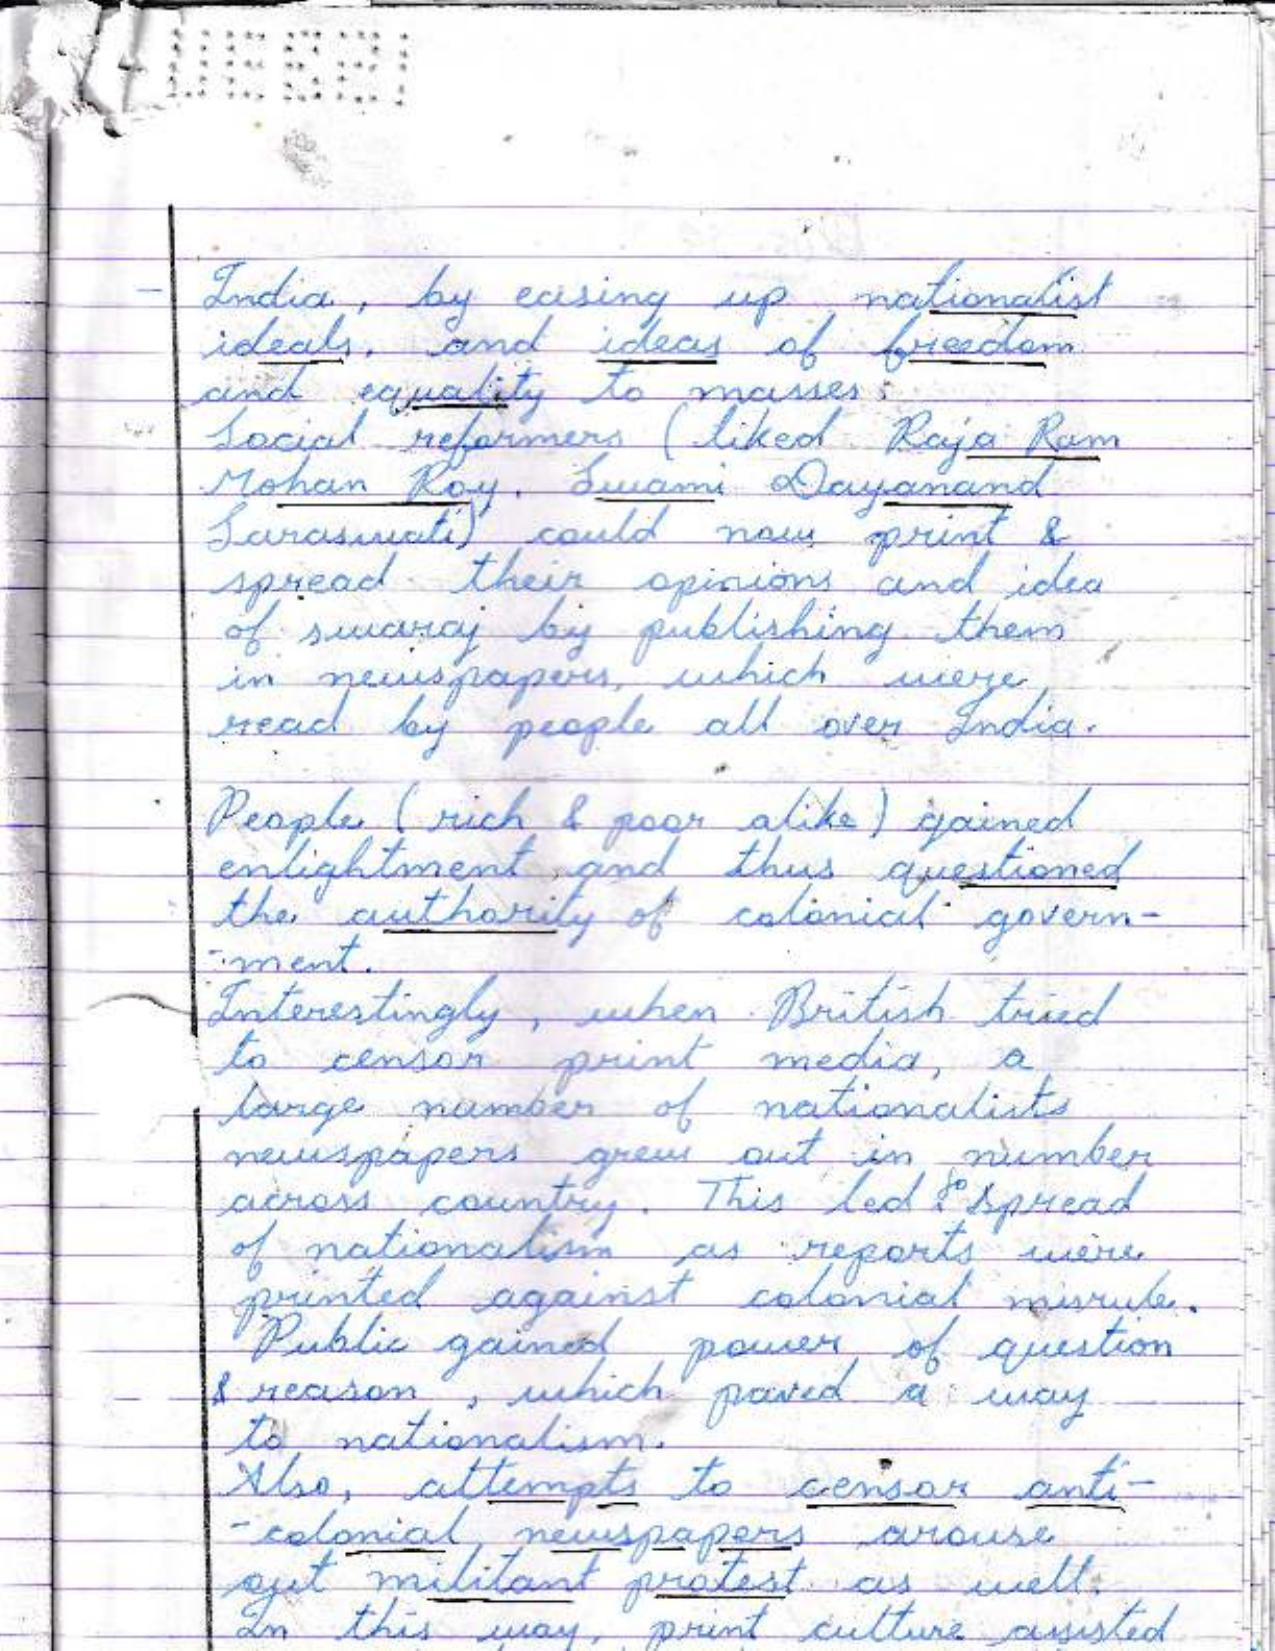 India, by easing up nationalist
ideals, and ideas of freedom
and equality to masses.
Social reformers (liked Raja Ram
Mohan Roy, Swami Dayanand
Saraswati) could now print &
spread their opinions and idea
of swaraj by publishing them
in newspapers, which were
read by people all over India.
People (rich & poor alike) gained
enlightment and thus questioned
the authority of colonial govern-
-ment.
Interestingly, when British tried
to censor print media, a
large number of nationalists
newspapers grew out in number
across country. This led to spread
of nationalism as reports were
printed against colonial misrule.
Public gained power of question
& reason, which paved a way
to nationalism.
Also, attempts to censor anti-
-colonial newspapers arouse
out militant protest as well.
In this way, print culture assisted